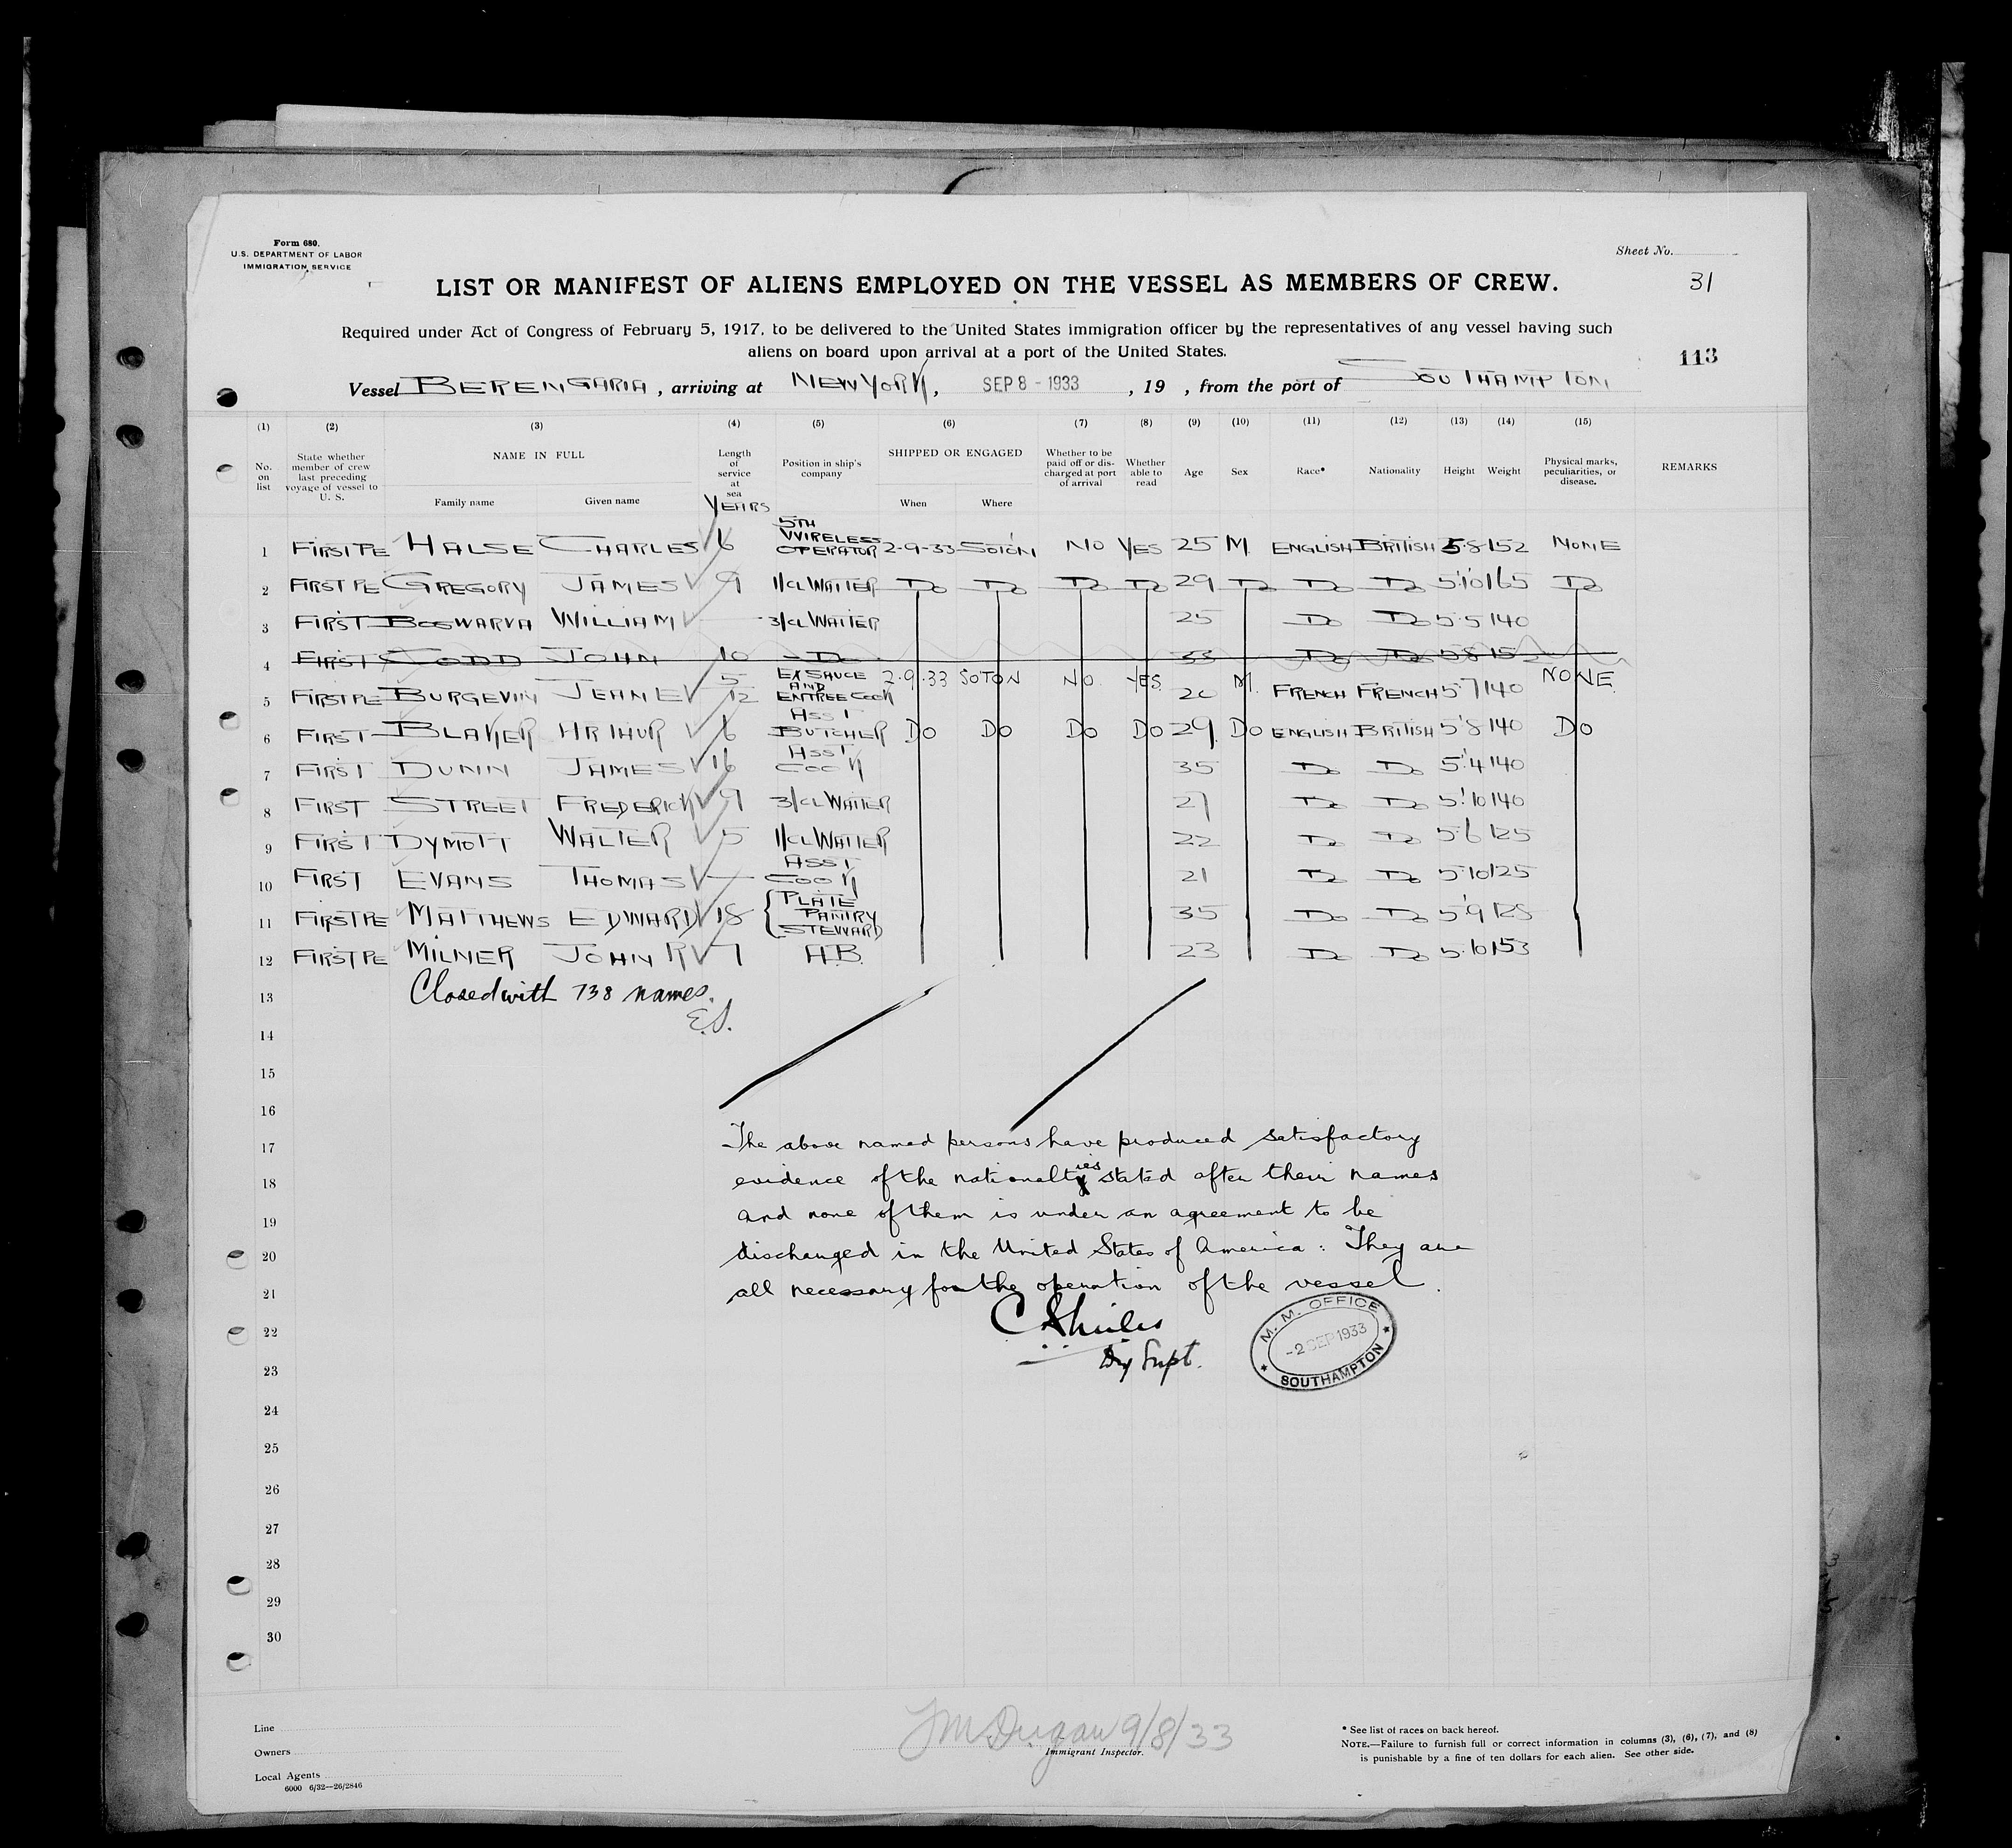 Form 680.
U.S. DEPARTMENT OF LABOR
IMMIGRATION SERVICE
Sheet No.
31
LIST OR MANIFEST OF ALIENS EMPLOYED ON THE VESSEL AS MEMBERS OF CREW.
Required under Act of Congress of February 5, 1917, to be delivered to the United States immigration officer by the representatives of any vessel having such
aliens on board upon arrival at a port of the United States.
113
Vessel BERENGARIA, arriving at NEW YORK, SEP 8 - 1933, 19 , from the port of SOUTHAMPTON
(1) (2) (3) (4) (5) (6) (7) (8) (9) (10) (11) (12) (13) (14) (15)
No. on list
State whether member of crew last preceding voyage of vessel to U. S.
NAME IN FULL
Family name
Given name
Length of service at sea
YEARS
Position in ship's company
SHIPPED OR ENGAGED
When
Where
Whether to be paid off or discharged at port of arrival
Whether able to read
Age
Sex
Race*
Nationality
Height
Weight
Physical marks, peculiarities, or disease.
REMARKS
1 FIRST PE HALSE CHARLES 6 5TH WIRELESS OPERATOR 2-9-33 SOTON NO YES 25 M ENGLISH BRITISH 5.8 152 NONE
2 FIRST PE GREGORY JAMES 9 1/CL WAITER DO DO DO DO 29 DO DO DO 5'10 165 DO
3 FIRST BOSWARVA WILLIAM — 3/CL WAITER 25 DO DO 5.5 140
4 FIRST TODD JOHN 10 DO 33 DO DO 5.8 15
5 FIRST PE BURGEVIN JEAN E 5/12 EX SAUCE AND ENTREE COOK 2.9.33 SOTON NO YES 20 M. FRENCH FRENCH 5'7 140 NONE
6 FIRST BLAKER ARTHUR 6 ASST BUTCHER DO DO DO DO 29 DO ENGLISH BRITISH 5'8 140 DO
7 FIRST DUNN JAMES 16 ASST COOK 35 DO DO 5'.4 140
8 FIRST STREET FREDERICK 9 3/CL WAITER 27 DO DO 5'.10 140
9 FIRST DYMOTT WALTER 5 1/CL WAITER 22 DO DO 5'6 125
10 FIRST EVANS THOMAS — ASST COOK 21 DO DO 5'10 125
11 FIRST PE MATTHEWS EDWARD 18 { PLATE PANTRY STEWARD 35 DO DO 5'9 125
12 FIRST PE MILNER JOHN R 7 A.B. 23 DO DO 5.10 153
13 Closed with 738 names.
E.S.
14
15
16
17 The above named persons have produced satisfactory
18 evidence of the nationalities stated after their names
19 and none of them is under an agreement to be
20 discharged in the United States of America: They are
21 all necessary for the operation of the vessel.
22 M. M. OFFICE
-2 SEP 1933
SOUTHAMPTON
Supt.
23
24
25
26
27
28
29
30
Line
Owners
Local Agents
6000 6/32—26/2846
9/8/33
Immigrant Inspector.
* See list of races on back hereof.
NOTE.—Failure to furnish full or correct information in columns (3), (6), (7), and (8)
is punishable by a fine of ten dollars for each alien. See other side.